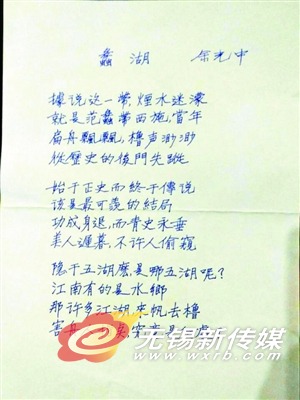 蠡湖 余光中
據說这一帶,煙水迷濛
就是范蠡帶西施,當年
扁舟飄飄,櫓声渺渺
從歷史的後門失蹤
始于正史而终于傳說
該是最可羡的结局
功成身退,而青史永垂
美人遲暮,不许人偷窥
隐于五湖麼是哪五湖呢?
江南有的是水鄉
那许多江湖来帆去櫓
害 究竟是 處
无锡新传媒
www.wxrb.com